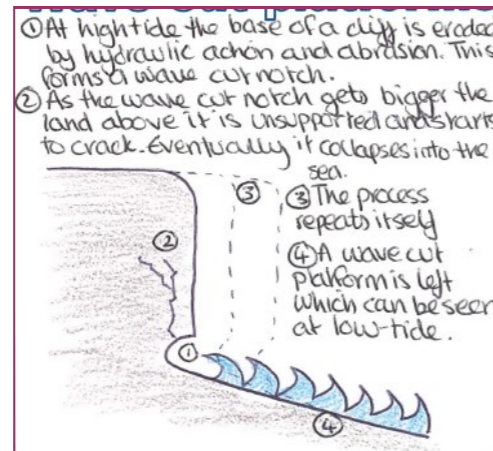 ① At high tide the base of a cliff is eroded
by hydraulic action and abrasion. This
forms a wave cut notch.
② As the wave cut notch gets bigger the
land above it is unsupported and starts
to crack. Eventually it collapses into the
sea.
③ ③ The process
repeats itself
② ④ A wave cut
platform is left
which can be seen
at low-tide.
①
④